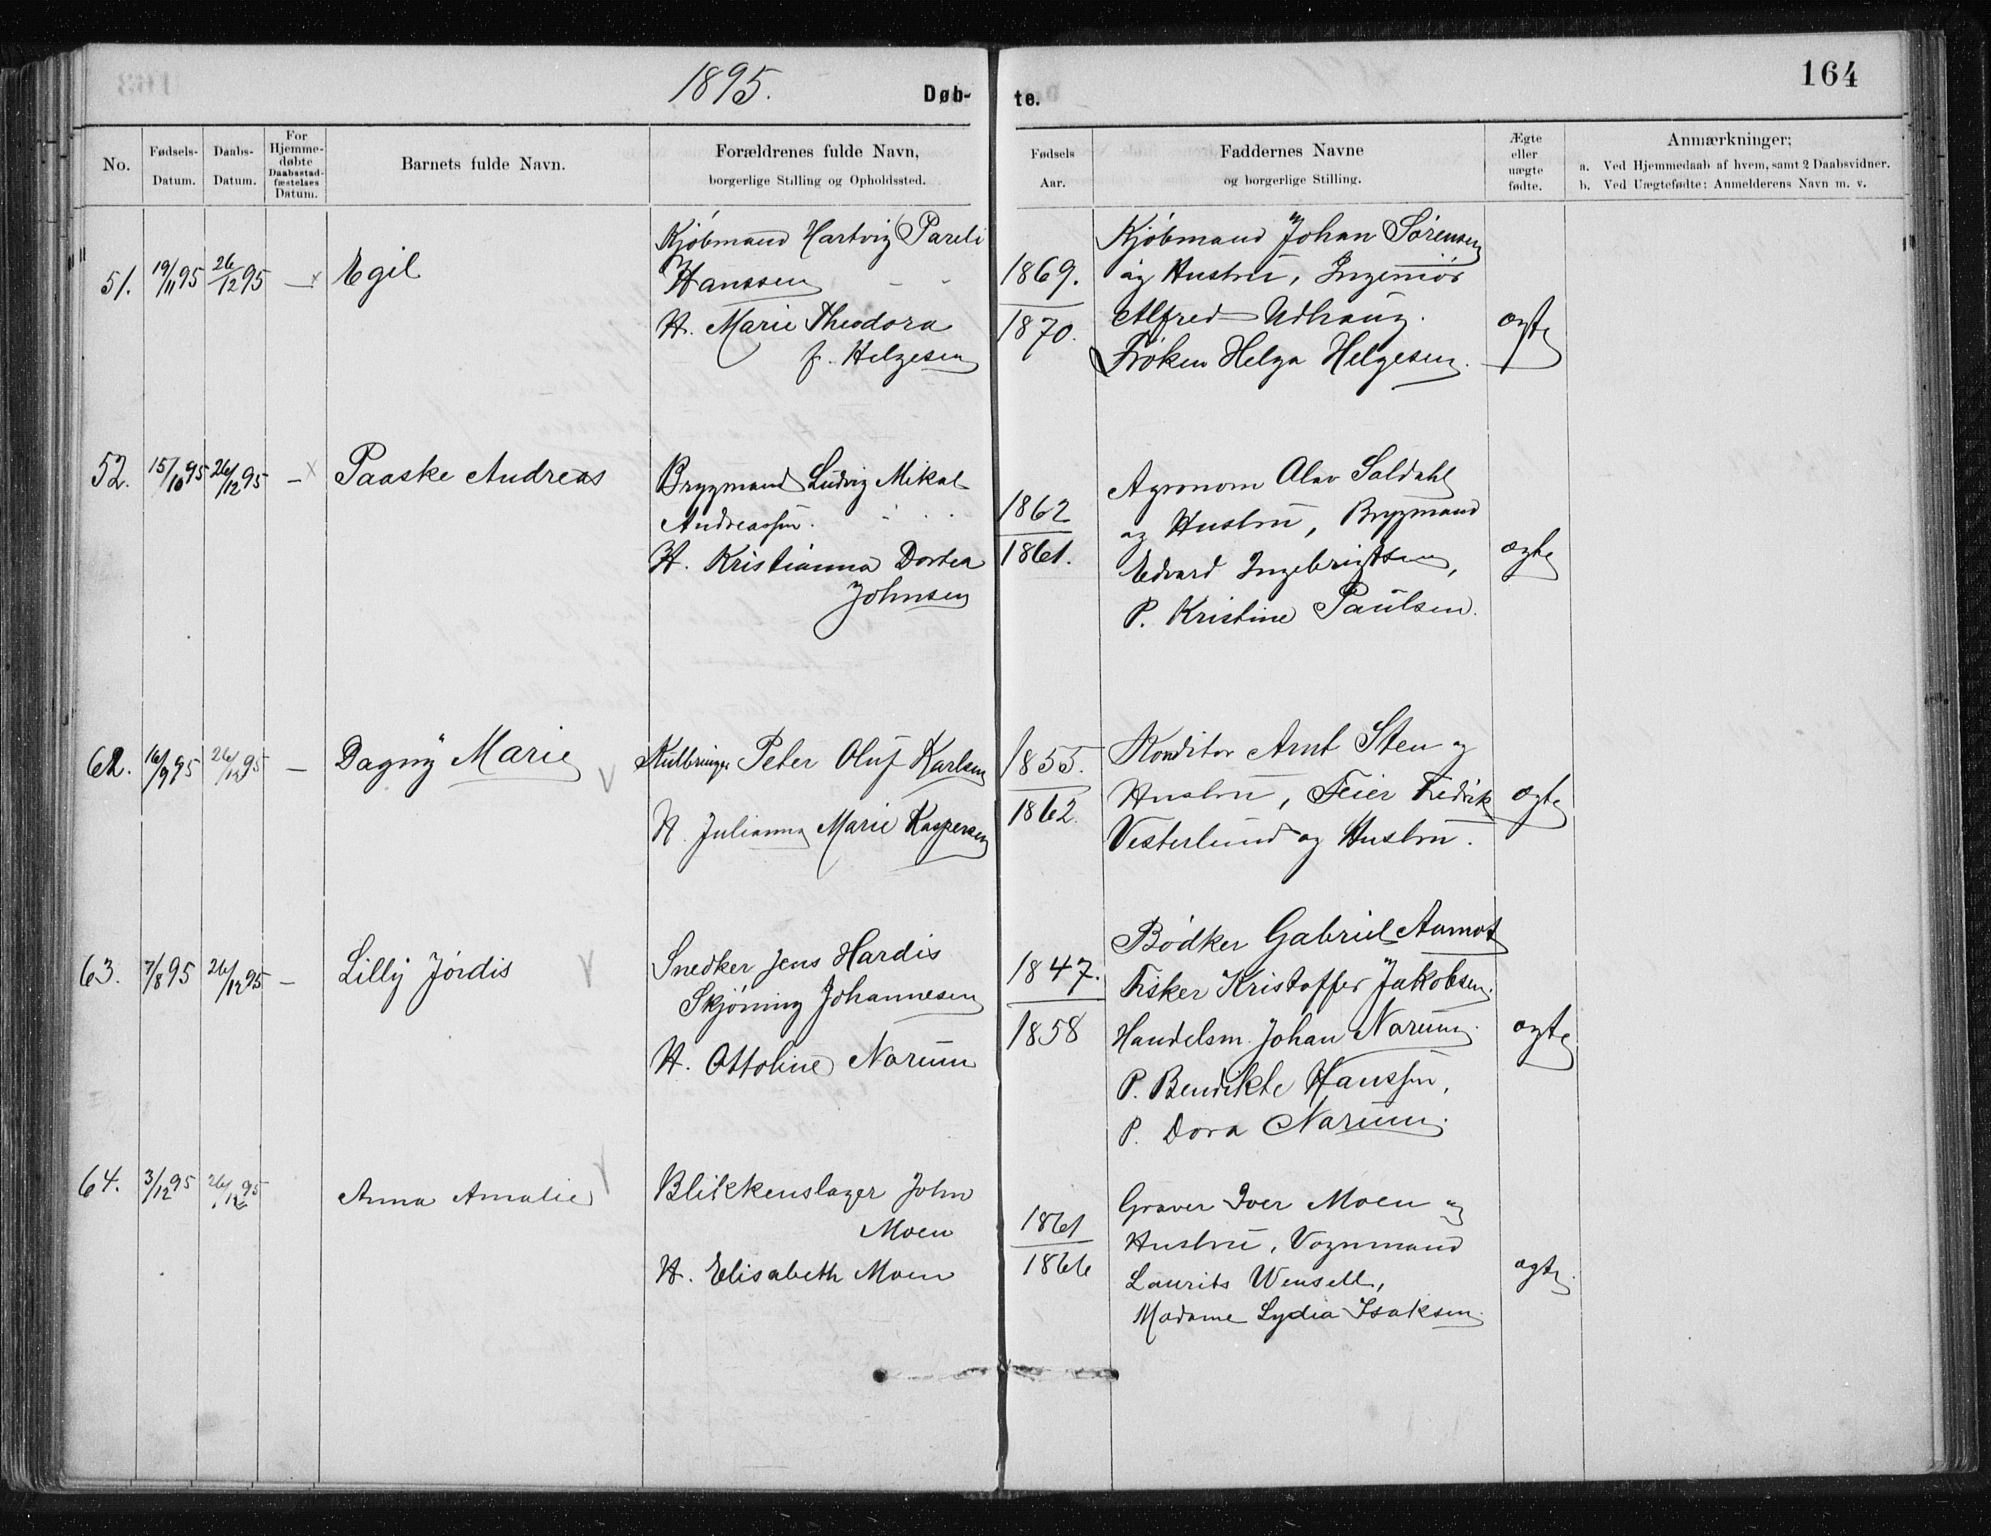 1895.
Døb-
te.
164
No.
Fødsels-
Datum.
Daabs-
Datum.
For
Hjemme-
døbte
Daabsstad-
fæstelses
Datum.
Barnets fulde Navn.
Forældrenes fulde Navn,
borgerlige Stilling og Opholdssted.
Fødsels
Aar.
Faddernes Navne
og borgerlige Stilling.
Ægte
eller
uægte
fødte.
Anmærkninger;
a. Ved Hjemmedaab af hvem, samt 2 Daabsvidner.
b. Ved Uægtefødte: Anmelderens Navn m. v.
51.
19/11 95
26/12 95
—
Egil
Kjøbmand Hartvig Pareli
Hanssen
H. Marie Theodora
f. Helgesen
1869.
1870.
Kjøbmand Johan Sørensen
og Hustru, Ingeniør
Alfred Udhaug.
Frøken Helga Helgesen.
ægte
52.
15/10 95
26/12 95
—
Paaske Andreas
Brygmand Ludvig Mikal
Andreassen.
H. Kristianna Dortea
Johnsen
1862
1861.
Agronom Olav Soldahl
og Hustru, Brygmand
Edvard Ingebrigtsen,
P. Kristine Paulsen.
ægte
62.
16/9 95
26/12 95
—
Dagny Marie
Peter Oluf Karlsen
H. Julianna Marie Kaspersen
1855.
1862.
Konditor Arnt Sten og
Hustru, Feier Fredrik
Vesterlund og Hustru.
ægte
63.
7/8 95
26/12 95
—
Lilly Jórdis
Snedker Jens Hardis
Skjøning Johannesen
H. Ottoline Norum
1847.
1858
Bødker Gabriel Aamot
Fisker Kristoffer Jakobsen.
Handelsm. Johan Norum.
P. Bendikte Hanssen,
P. Dora Narum.
ægte
64.
3/12 95
26/12 95
Anna Amalie
Blikkenslager John
Moen
H. Elisabeth Moen
1861
1866
Graver Iver Moen og
Hustru, Vognmand
Laurits Wensell,
Madame Lydia Isaksen.
ægte.